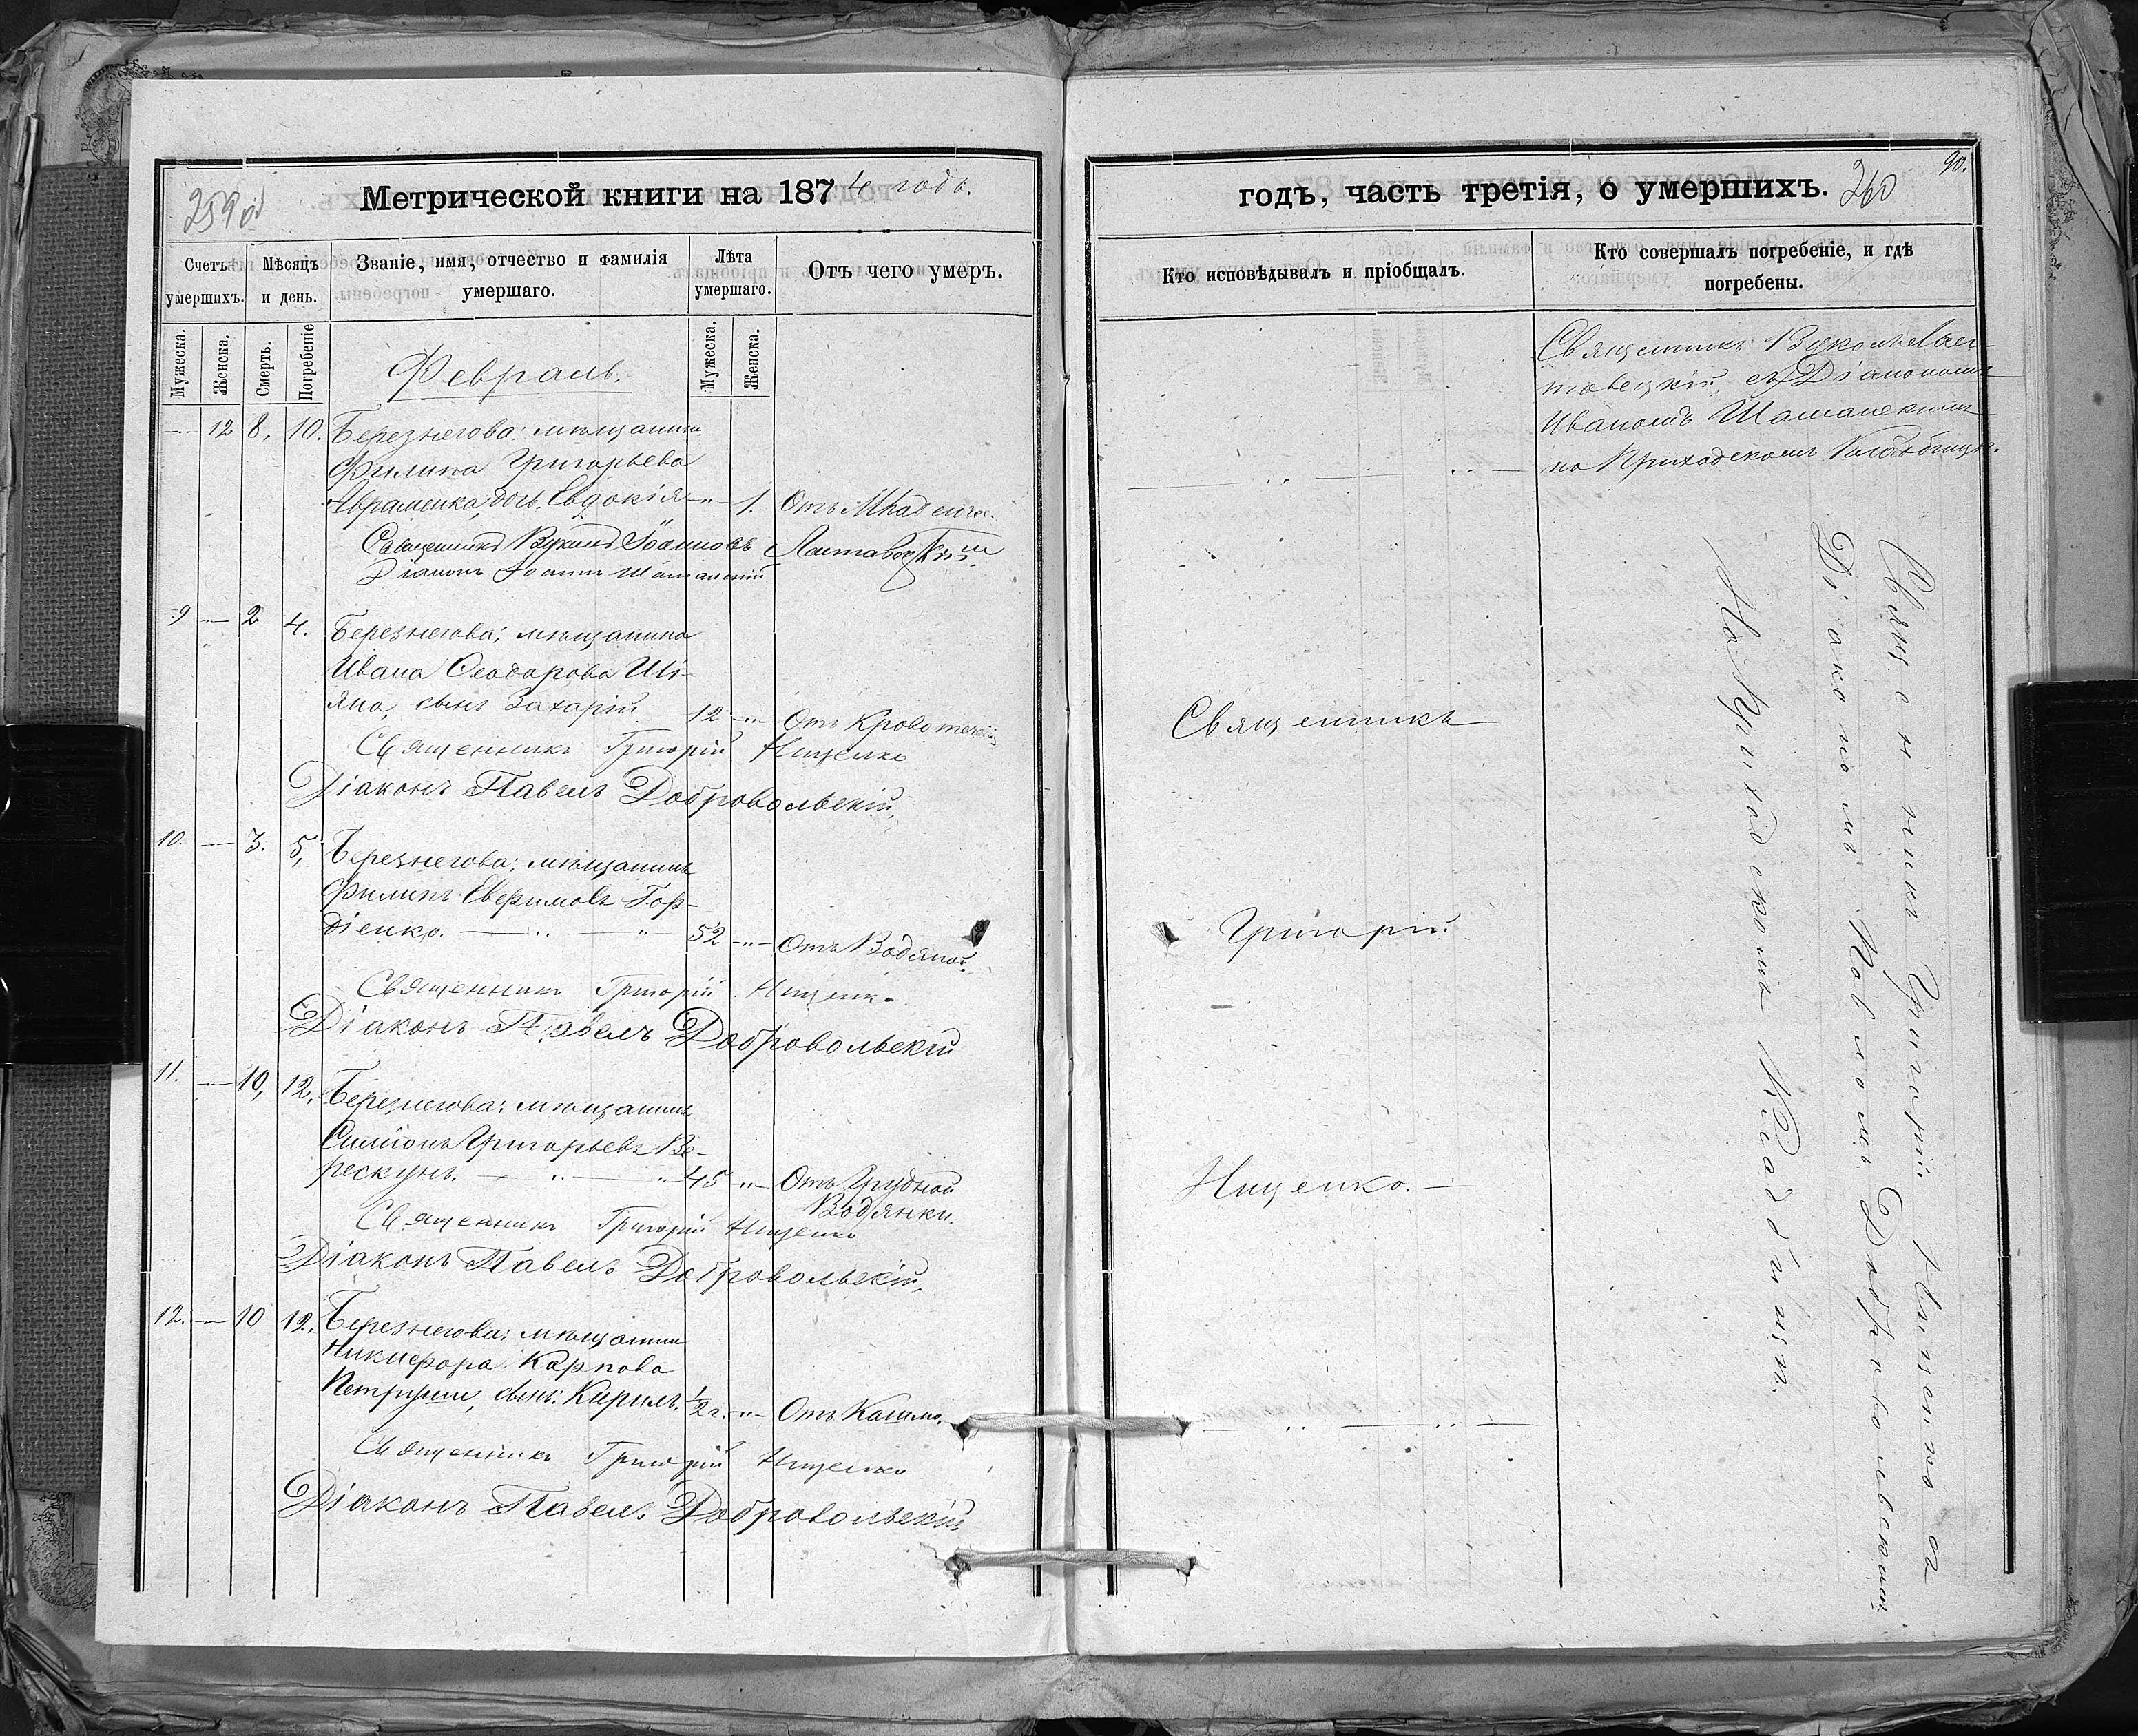 259 об
Метрической книги на 1874 годъ.
Счетъ умершихъ.
Мѣсяцъ и день.
Званіе, имя, отчество и фамилія умершаго.
Лѣта умершаго.
Отъ чего умеръ.
Мужеска.
Женска.
Смерть.
Погребеніе
Мужеска.
Женска.
Февраль.
— 12 8, 10. Березнегова: мѣщанина
Филипа Григорьева
Авраменка, дочь Евдокія - " - 1. Отъ Младенчес.
Священникъ Вуколъ Іоанновъ Ластавецкій
Діаконъ Іоаннъ Шаманскій
9 — 2 4. Березнегова; мѣщанина
Ивана Ѳеодорова Ші-
яна, сынъ Захарій. 12 - " - Отъ Кровотеченія
Священникъ Григорій Нищенко
Діаконъ Павелъ Добровольскій.
10. — 3. 5, Березнегова: мѣщанинъ
Филипъ Евфимовъ Гор-
діенко. — " — " — 52 - " - Отъ Водяной.
Священникъ Григорій Нищенко
Діаконъ Павелъ Добровольскій
11. — 10, 12. Березнегова: мѣщанинъ
Симіонъ Григорьевъ Ве-
рескунъ. — " — " 45 - " - Отъ Грудной
Водянки.
Священникъ Григорій Нищенко
Діаконъ Павелъ Добровольскій.
12. — 10 12. Березнегова: мѣщанина
Никифора Карпова
Петруши, сынъ: Кирилъ. 1/2 г. - " - Отъ Кашлю.
Священникъ Григорій Нищенко
Діаконъ Павелъ Добровольскій
годъ, часть третія, о умершихъ.
260
90.
Кто исповѣдывалъ и пріобщалъ.
Кто совершалъ погребеніе, и гдѣ погребены.
Священникъ Вуколъ Ласта-
вецкій, съ Діакономъ
Иваномъ Шаманскимъ
на Приходскомъ Кладбищѣ.
Священникъ
Григорій
Нищенко. —
Священникъ Григорій Нищенко съ
Діакономъ Павломъ Добровольскимъ
На Приходскомъ Кладбищѣ.